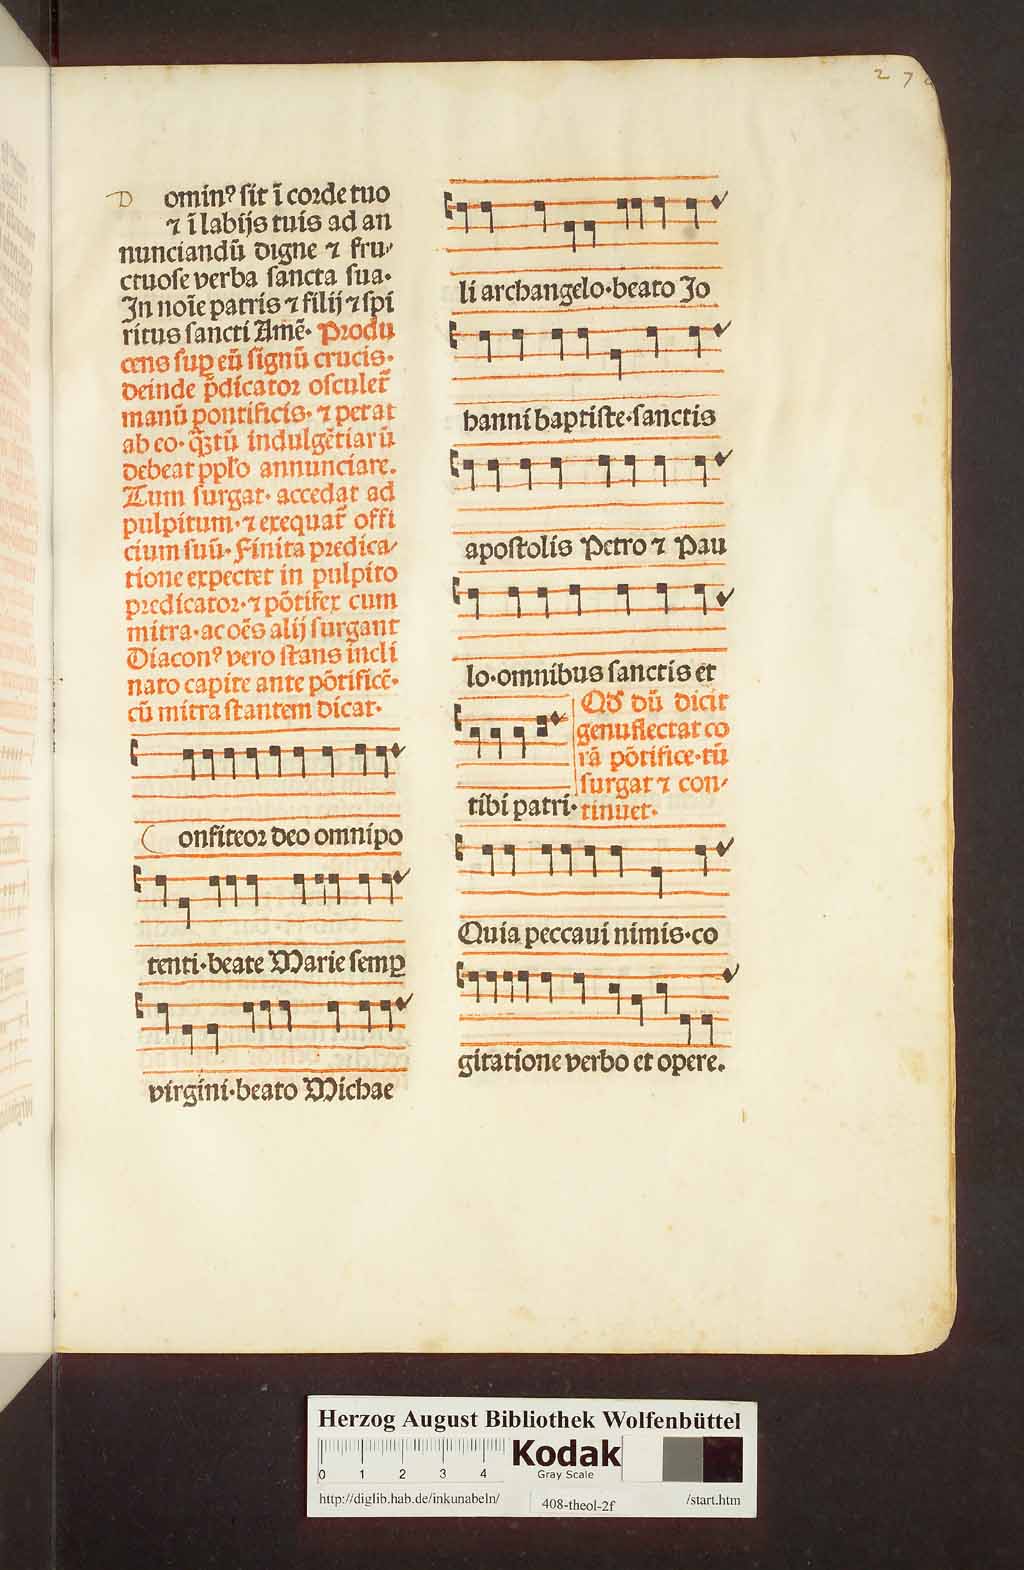 27
D ominꝰ sit ĩ corde tuo
⁊ ĩ labijs tuis ad an
nunciandũ digne ⁊ fru-
ctuose verba sancta sua.
In noĩe patris ⁊ filij ⁊ spi
ritus sancti Amẽ. Produ
cens suꝑ eũ signũ crucis.
deinde p̃dicator osculet̃
manũ pontificis. ⁊ petat
ab eo. q̃ztũ indulgẽtiarũ
debeat ppl̃o annunciare.
Tum surgat. accedat ad
pulpitum. ⁊ exequat̃ offi
cium suũ. Finita predica-
tione expectet in pulpito
predicator. ⁊ põtifex cum
mitra. ac oẽs alij surgant
Diaconꝰ vero stans incli
nato capite ante põtificẽ.
cũ mitra stantem dicat.
C onfiteor deo omnipo
tenti. beate Marie semꝑ
virgini. beato Michae
li archangelo. beato Jo
hanni baptiste. sanctis
apostolis Petro ⁊ Pau
lo. omnibus sanctis et
tibi patri.
Qđ dũ dicit
genuflectat co
rã põtifice. tũ
surgat ⁊ con-
tinuet.
Quia peccaui nimis. co
gitatione verbo et opere.
Herzog August Bibliothek Wolfenbüttel
0 1 2 3 4
Kodak
Gray Scale
http://diglib.hab.de/inkunabeln/ 408-theol-2f /start.htm